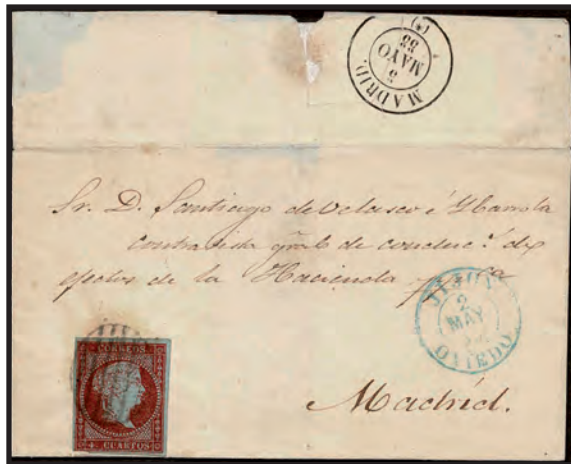 MADRID.
5
MAYO
Sr. D. Santiago de Velasco é Ybarrola
contratista gral de conducn. de
efectos de la Hacienda
JIJON
2
MAY
OVIEDO
CORREOS.
4 CUARTOS
Madrid.